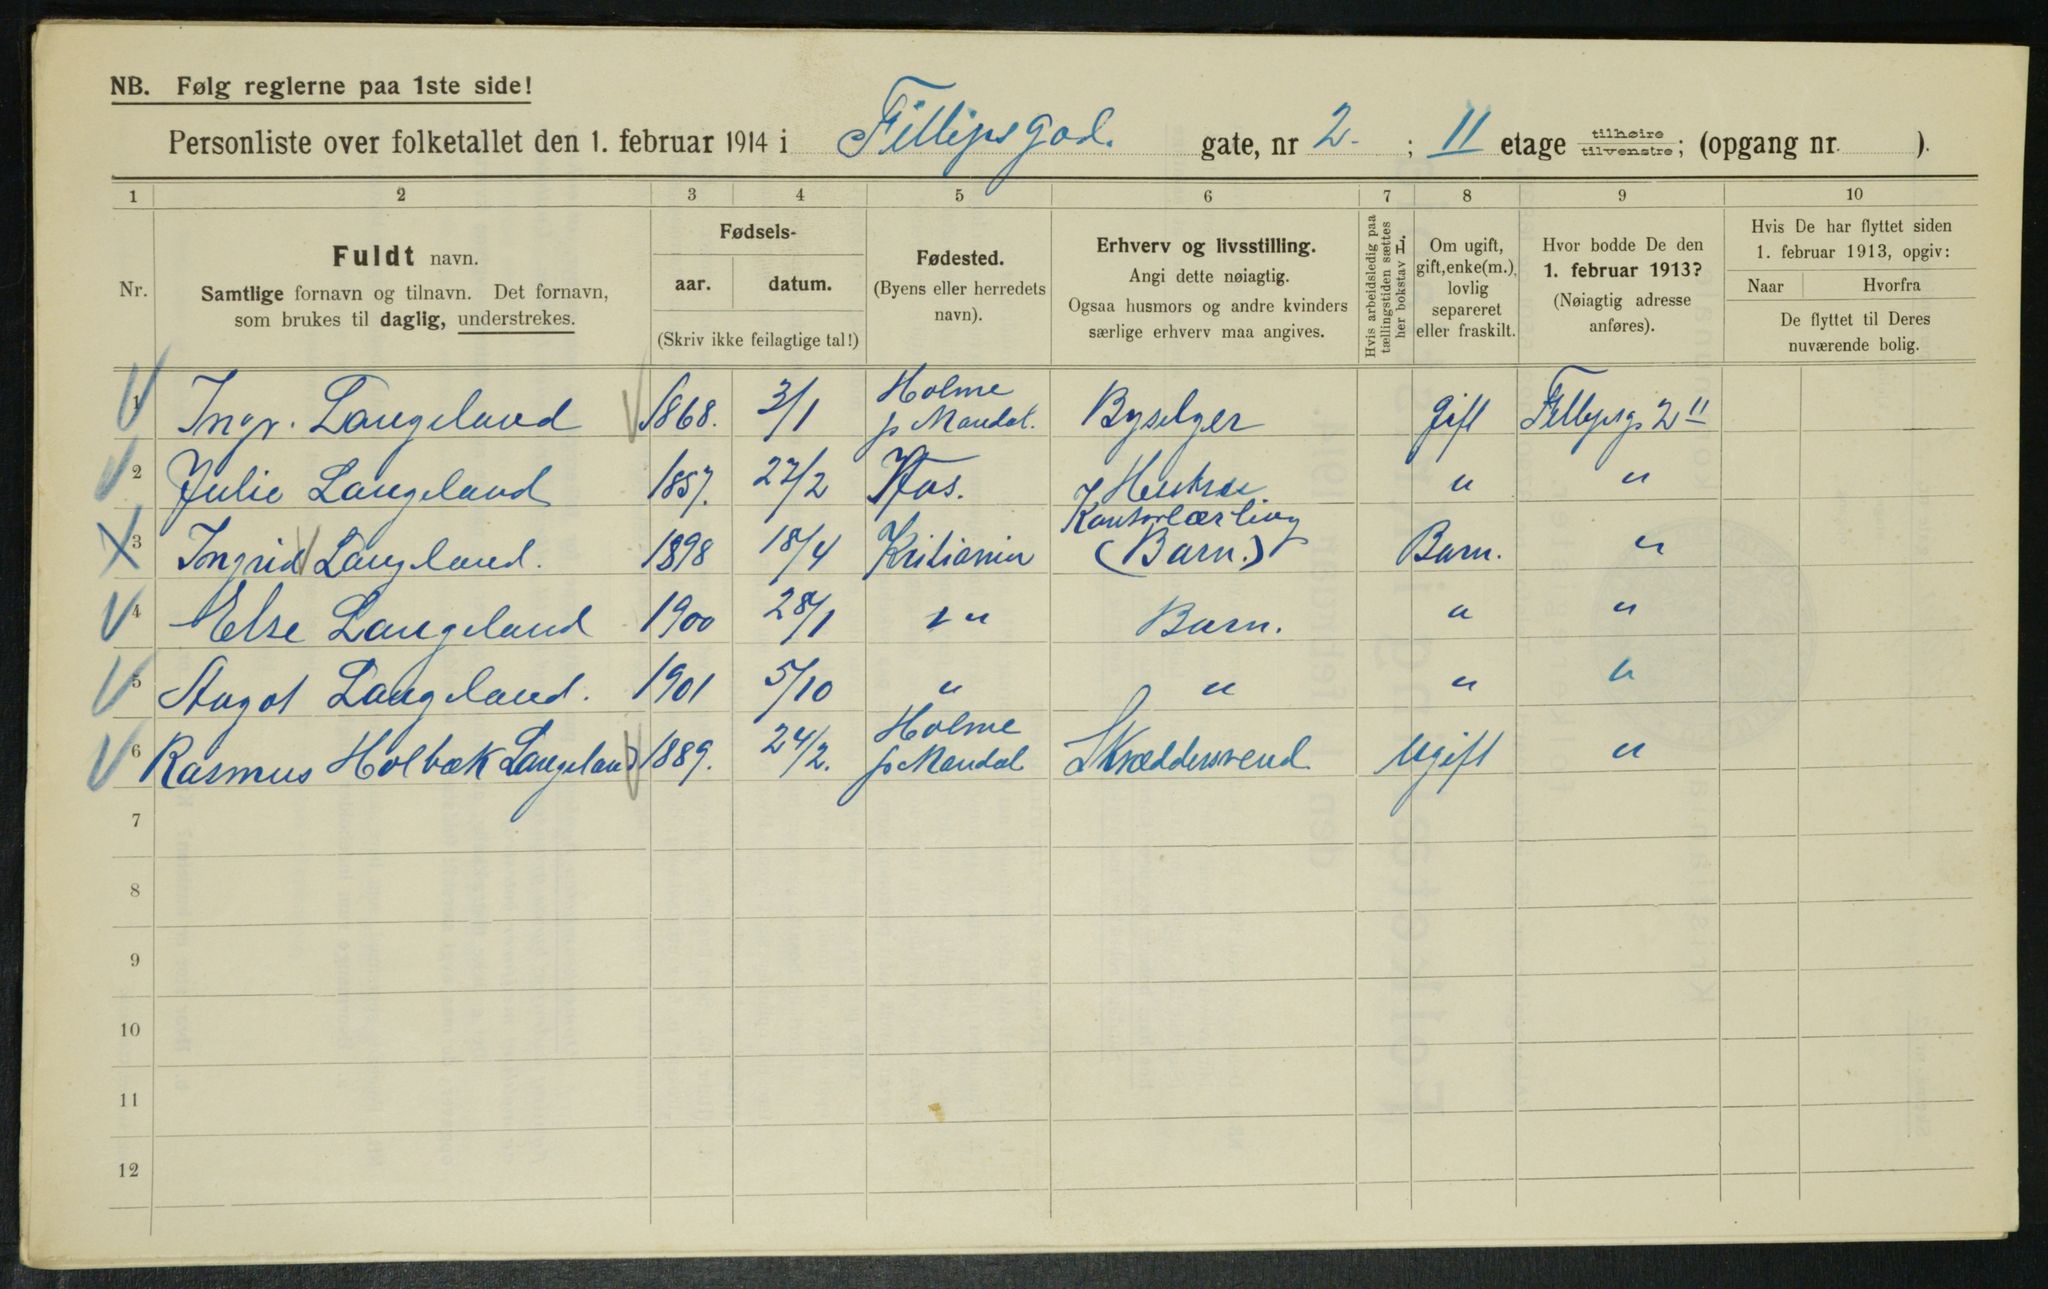 NB. Følg reglerne paa 1ste side!
Personliste over folketallet den 1. februar 1914 i Fillipsgad. gate, nr 2. ; II etage tilhøire tilvenstre; (opgang nr. ).
1 2 3 4 5 6 7 8 9 10
Nr.
Fuldt navn.
Samtlige fornavn og tilnavn. Det fornavn,
som brukes til daglig, understrekes.
Fødsels-
aar. datum.
(Skriv ikke feilagtige tal!)
Fødested.
(Byens eller herredets
navn).
Erhverv og livsstilling.
Angi dette nøiagtig.
Ogsaa husmors og andre kvinders
særlige erhverv maa angives.
Hvis arbeidsledig paa
tællingstiden sættes
her bokstav H.
Om ugift,
gift, enke(m.),
lovlig
separeret
eller fraskilt.
Hvor bodde De den
1. februar 1913?
(Nøiagtig adresse
anføres).
Hvis De har flyttet siden
1. februar 1913, opgiv:
Naar Hvorfra
De flyttet til Deres
nuværende bolig.
1 Ingv. Langeland 1868. 3/1 Holme p Mandal. Byselger gift Fillipsg. 2 II
2 Julie Langeland 1857. 27/2 Hustru " "
3 Ingrid Langeland. 1898 18/4 Kristiania Kontorlærling (Barn.) Barn. "
4 Else Langeland 1900 28/1 " " Barn. " "
5 Aagot Langeland. 1901 5/10 " " " "
6 Rasmus Holbæk Langeland 1889. 24/2. Holme p Mandal Skræddersvend Ugift "
7
8
9
10
11
12